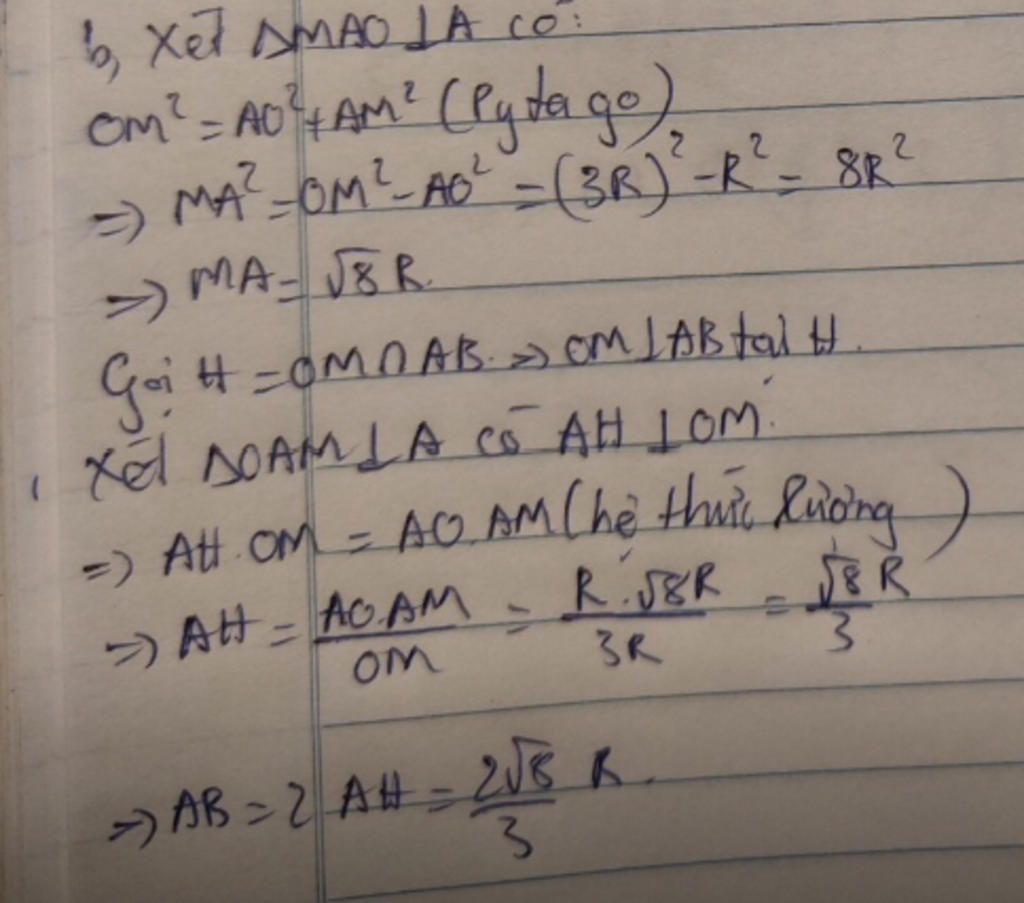 b, Xét ΔMAO ⊥ A có:
OM² = AO² + AM² (Pytago)
=> MA² = OM² - AO² = (3R)² - R² = 8R²
=> MA = √8 R.
Gọi H = OM ∩ AB. => OM ⊥ AB tại H.
Xét ΔOAM ⊥ A có AH ⊥ OM.
=> AH.OM = AO.AM (hệ thức lường)
=> AH = AO.AM/OM = R.√8R/3R = √8 R/3
=> AB = 2 AH = 2√8/3 R.